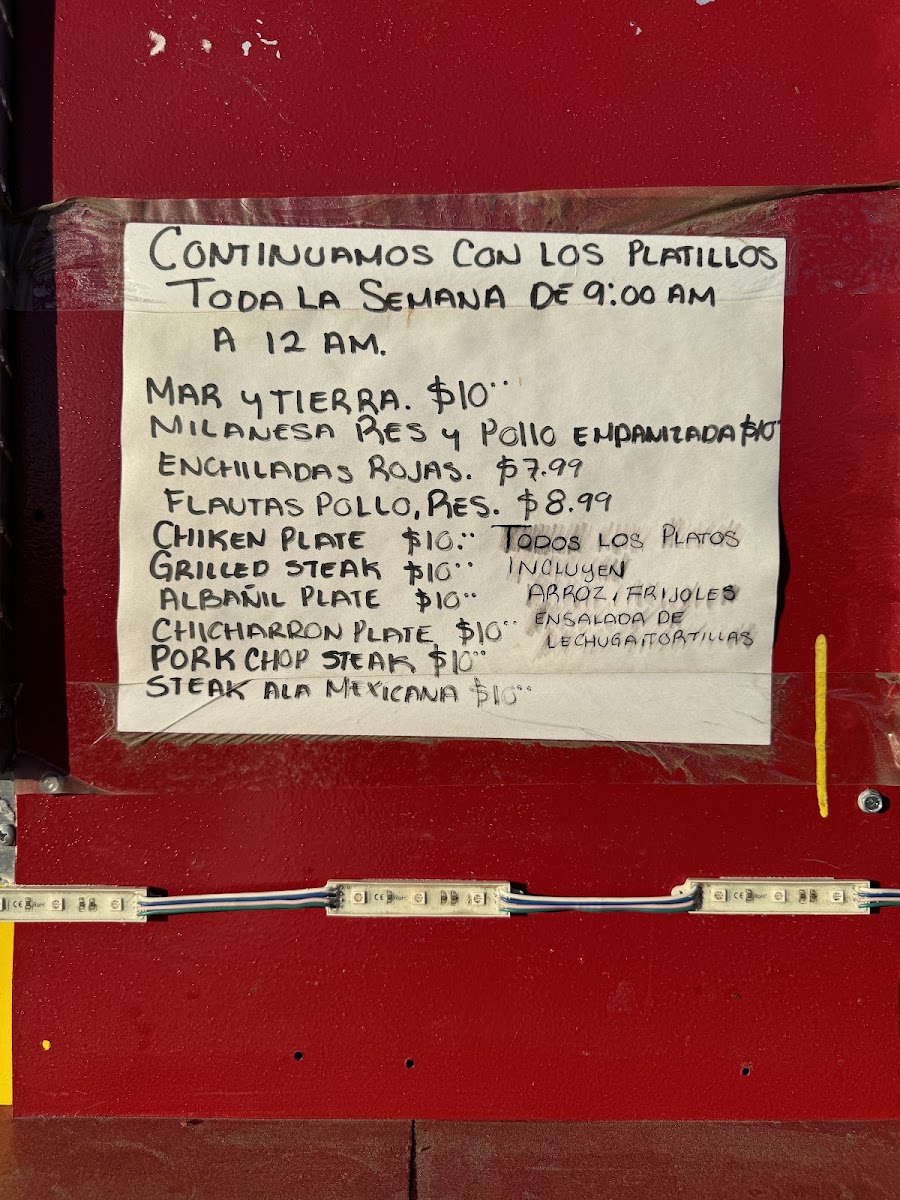 CONTINUAMOS CON LOS PLATILLOS
TODA LA SEMANA DE 9:00 AM
A 12 AM.
MAR Y TIERRA. $10..
MILANESA RES Y POLLO EMPANIZADA $10
ENCHILADAS ROJAS. $7.99
FLAUTAS POLLO, RES. $8.99
CHIKEN PLATE $10..
GRILLED STEAK $10..
ALBAÑIL PLATE $10..
CHICHARRON PLATE $10..
PORK CHOP STEAK $10..
STEAK ALA MEXICANA $10..
TODOS LOS PLATOS
INCLUYEN
ARROZ, FRIJOLES
ENSALADA DE
LECHUGA, TORTILLAS